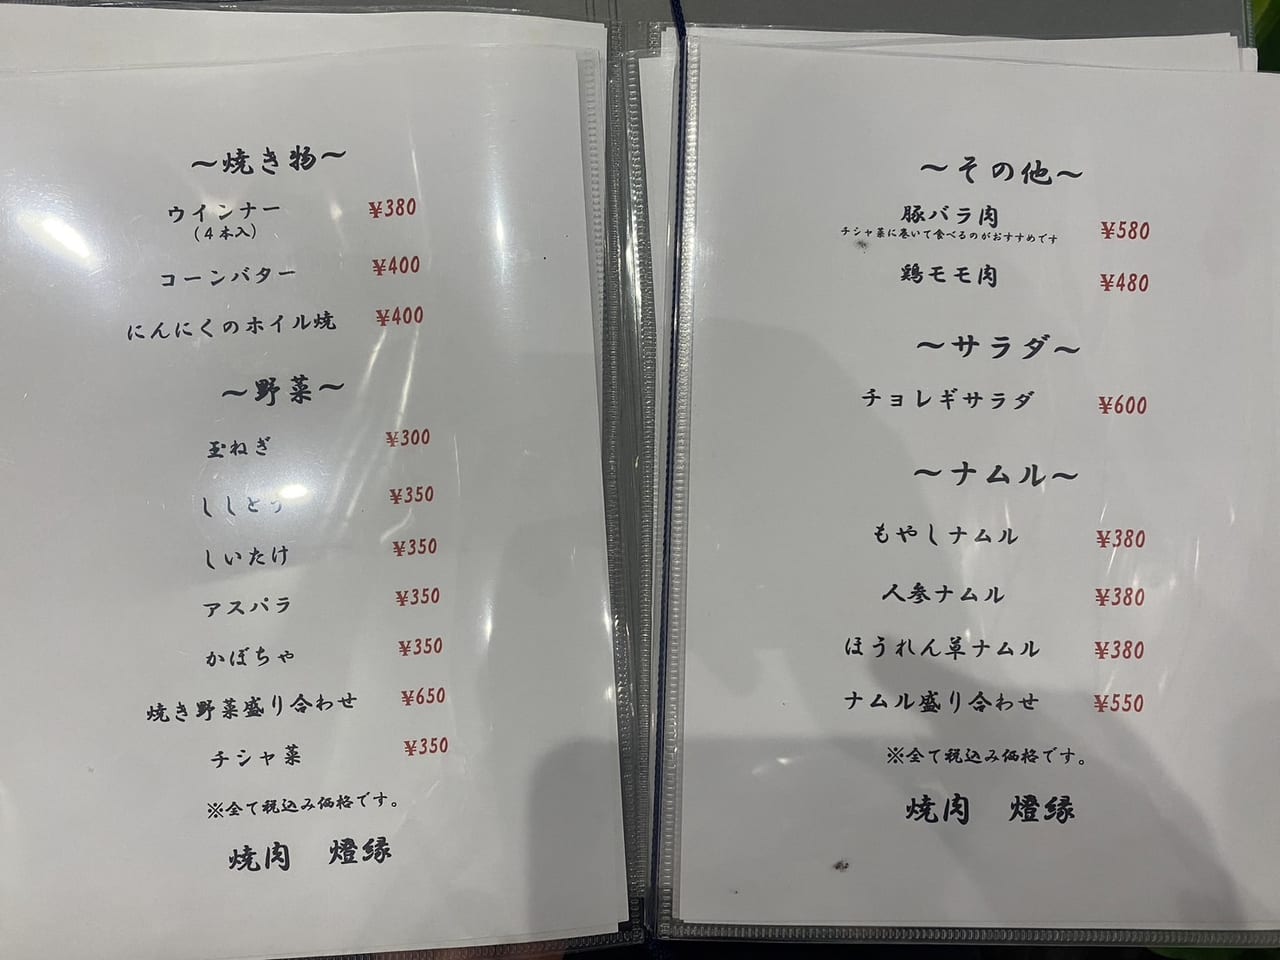 ～焼き物～
ウインナー ¥380
(4本入)
コーンバター ¥400
にんにくのホイル焼 ¥400
～野菜～
玉ねぎ ¥300
ししとう ¥350
しいたけ ¥350
アスパラ ¥350
かぼちゃ ¥350
焼き野菜盛り合わせ ¥650
チシャ菜 ¥350
※全て税込み価格です。
焼肉 燈縁
～その他～
豚バラ肉 ¥580
チシャ菜に巻いて食べるのがおすすめです
鶏モモ肉 ¥480
～サラダ～
チョレギサラダ ¥600
～ナムル～
もやしナムル ¥380
人参ナムル ¥380
ほうれん草ナムル ¥380
ナムル盛り合わせ ¥550
※全て税込み価格です。
焼肉 燈縁